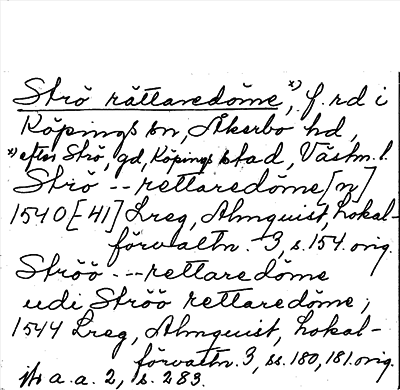 Strö rättaredöme, x) f. rd i
Köpings sn, Åkerbo hd,
x) efter Strö, gd, Köpings stad, Västm. l.
Strö -- rettaredöme[n]
1540[-41] Lreg, Almquist, Lokal-
förvaltn. 3, s. 154. orig.
Ströö --- rettaredöme
udi Ströö rettaredöme,
1544 Lreg, Almquist, Lokal-
förvaltn. 3, ss. 180, 181. orig.
jfr a. a. 2, s. 283.